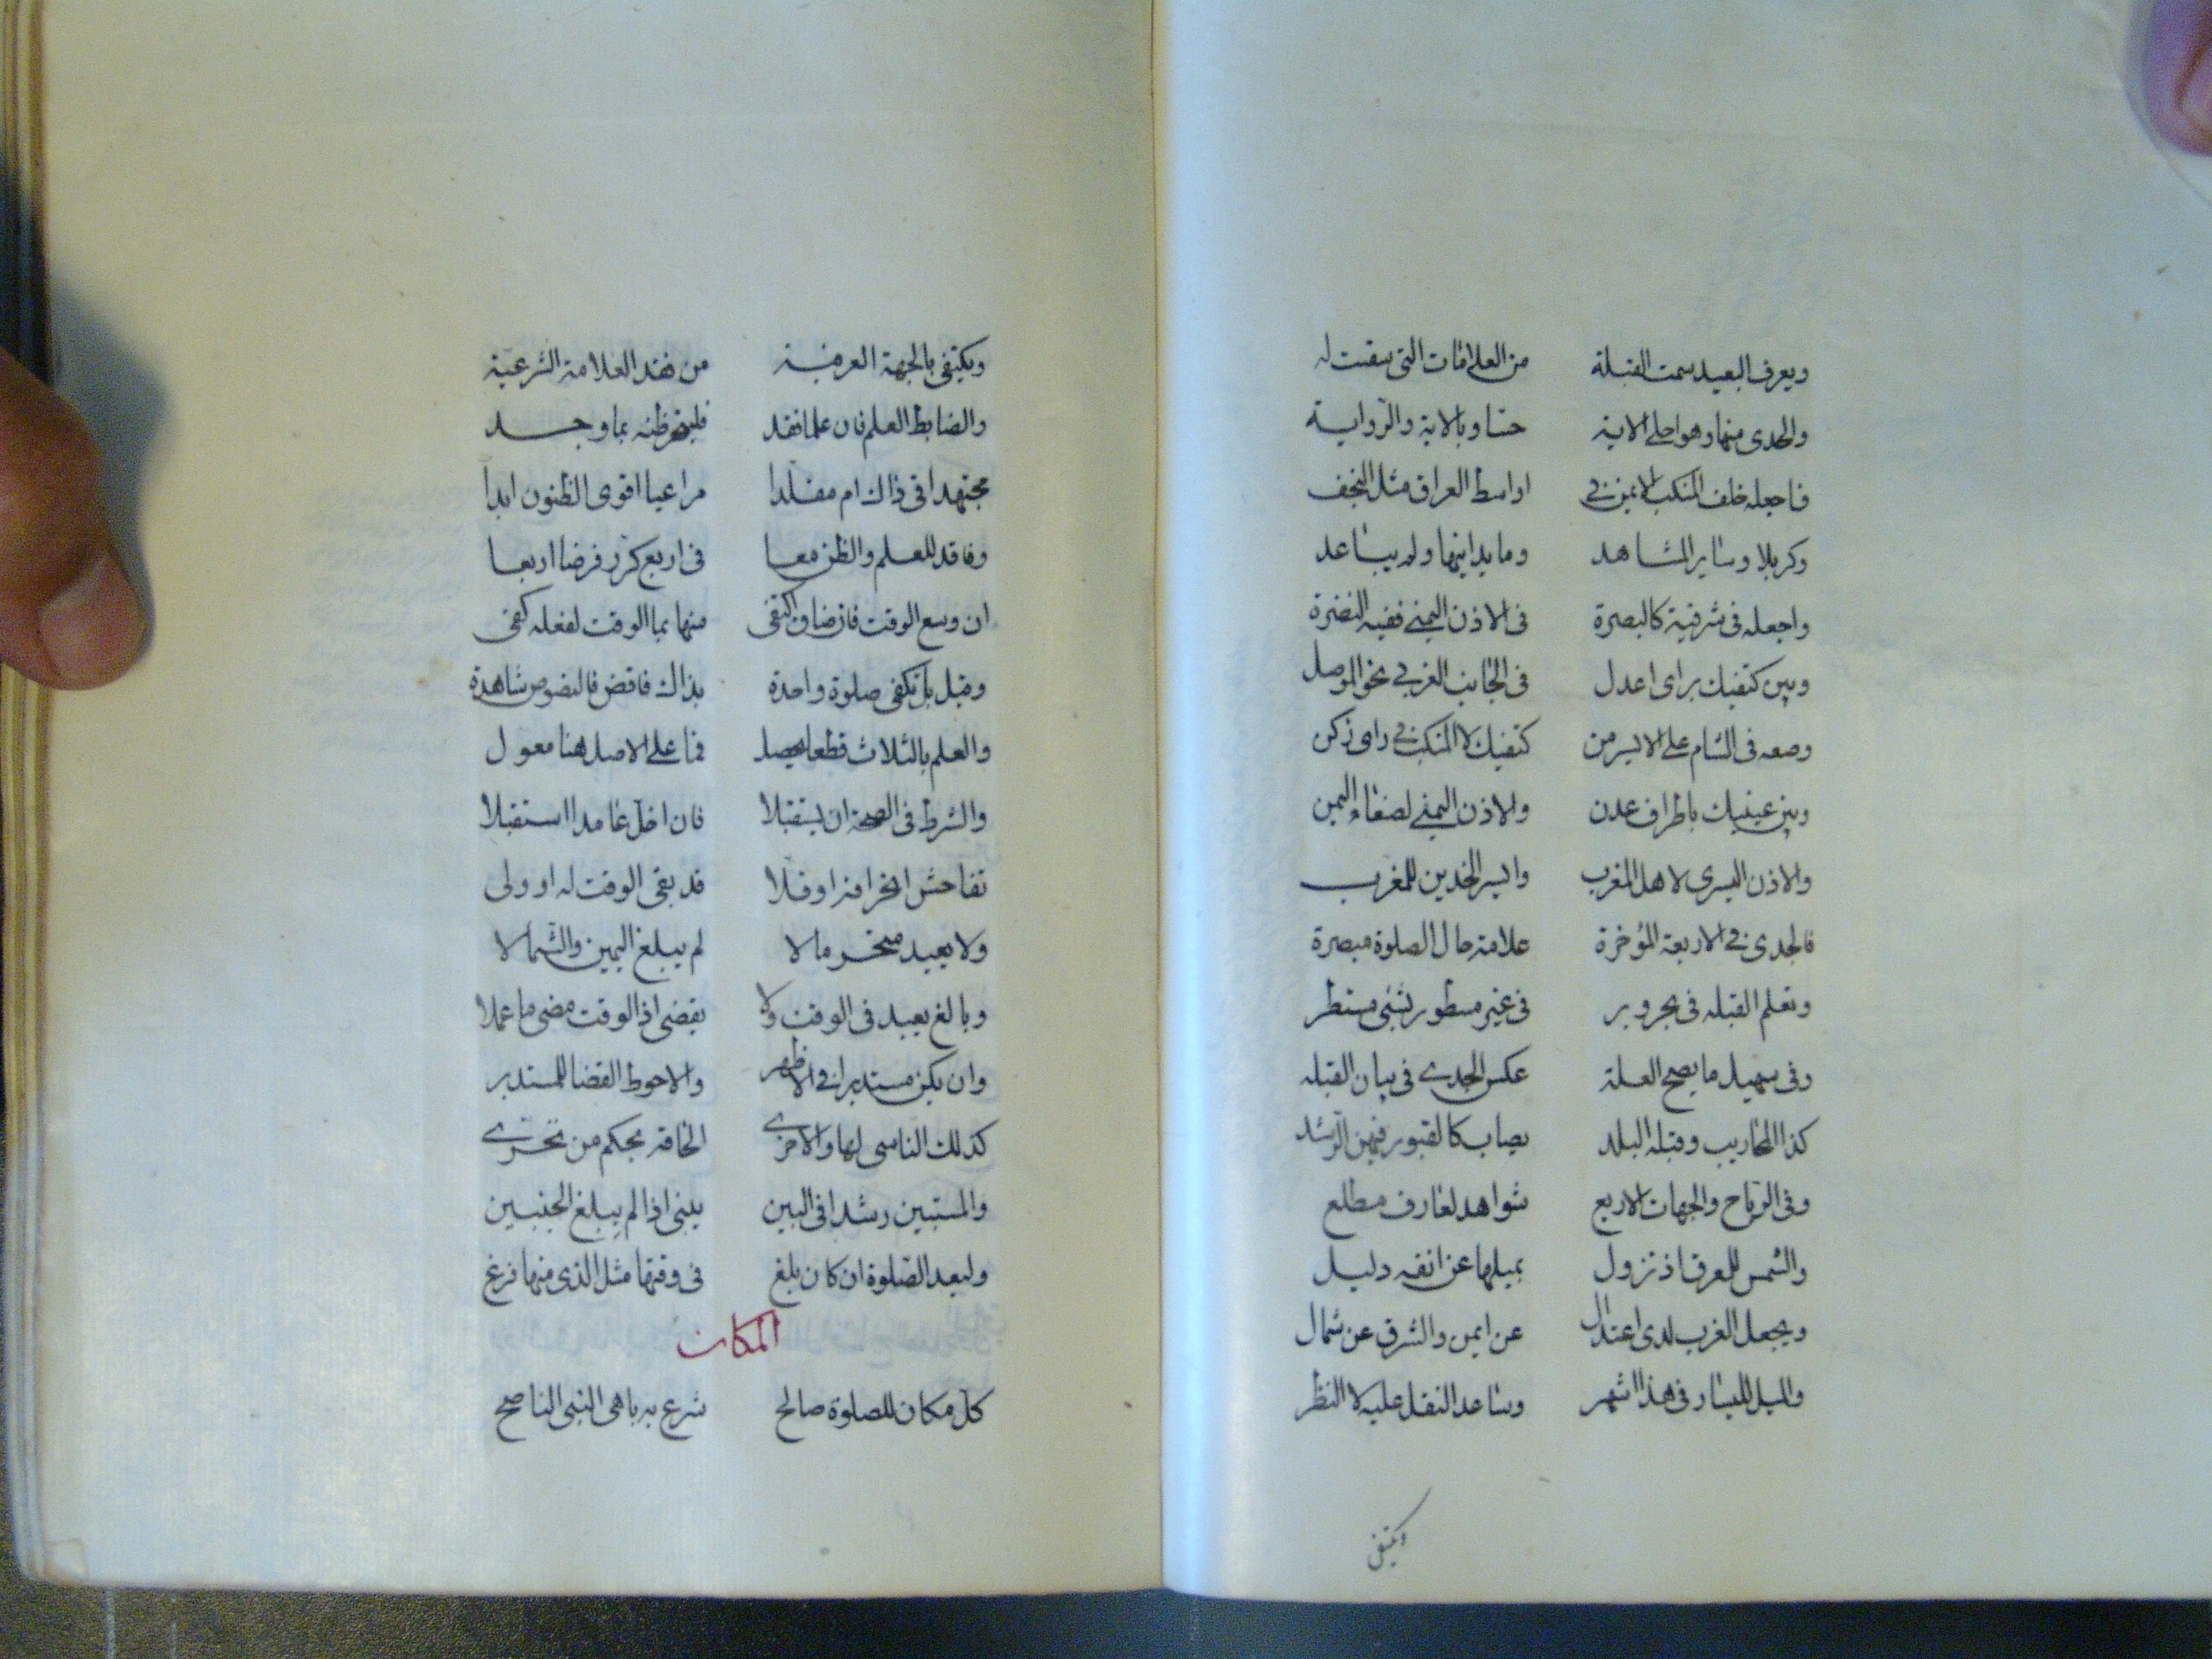 ويعرف البعيد سمت القبلة من العلامات التي سيقت له
والجدى منها وهو اصل الاية حسا وبالاية والرواية
فاجعله خلف المنكب الايمن في اواسط العراق مثل النجف
وكربلا وساير المشاهد وما يدانيها ولم يباعد
واجعله فى شرقية كالبصرة فى الاذن اليمنى ففيه النضرة
وبين كتفيك براى اعدل فى الجانب الغربي نحو الموصل
وضعه فى الشام على الايسر من كتفيك لا المنكب في راى زكن
وبين عينيك باطراف عدن والاذن اليمنى لصنعاء اليمن
والاذن اليسرى لاهل المغرب وايسر الخدين للمغرب
فالجدى في الاربعة المؤخرة علامة حال الصلوة مبصرة
وتعلم القبله فى بحر وبر فى غير مسطور بشئى مستطر
وفى سهيل ما يصح العلة عكس الجدي فى بيان القبله
كذا المحاريب وقبلة البلد يصاب كالقبور فيهن الرشد
وفى الرياح والجهات الاربع شواهد لعارف مطلع
والشمس للعراق اذ تزول بميلها عن انفه دليل
ويجعل الغرب لدى اعتدال عن ايمن والشرق عن شمال
والميل لليسار فى هذا اشتهر وساعد النقل عليه لا النظر
ويكتفى
ويكتفى بالجهة العرفية من فقد العلامة الشرعية
والضابط العلم فان علما فقد ظنه بما وجد
مجتهدا فى ذاك ام مقلدا مراعيا اقوى الظنون ابدا
وفاقد للعلم والظن معا فى اربع كرر فرضا اربعا
ان وسع الوقت فان ضاق اكتفى منها بما الوقت لفعله كفى
وقيل بل تكفى صلوة واحدة بذاك فاقض فالنصوص شاهدة
والعلم بالثلاث قطعا يحصل فما على الاصل هنا معول
والشرط فى الصحة ان يستقبلا فان اخل عامدا استقبلا
تفاحش انحرافه او قلا قد بقى الوقت له او ولى
ولا يعيد منحرف مالا لم يبلغ اليمين والشمالا
وبالغ يعيد فى الوقت ولا يقضى اذ الوقت مضى ما عملا
وان يكن مستدبرا في الاظهر والاحوط القضا للمستدبر
كذلك الناسى لها والاحرى الحاقه بحكم من تحرى
والمستبين رشدا فى البين يبنى اذا لم يبلغ الجنبين
وليعد الصلوة ان كان بلغ فى وقتها مثل الذى منها فرغ
المكان
كل مكان للصلوة صالح شرع به باهى النبى الناصح